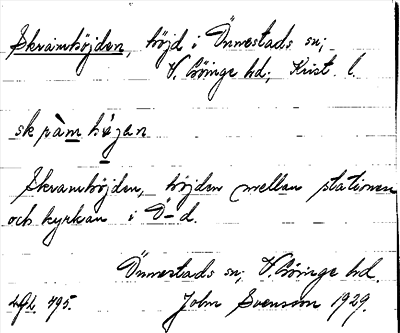 Skramhöjden, höjd i Önnestads sn;
V. Göinge hd; Krist. l.
skràm hǿjan
Skramhöjden, höjden mellan stationen
och kyrkan i Ö-d.
Önnestads sn, V. Göinge hd.
495. John Svensson 1929.